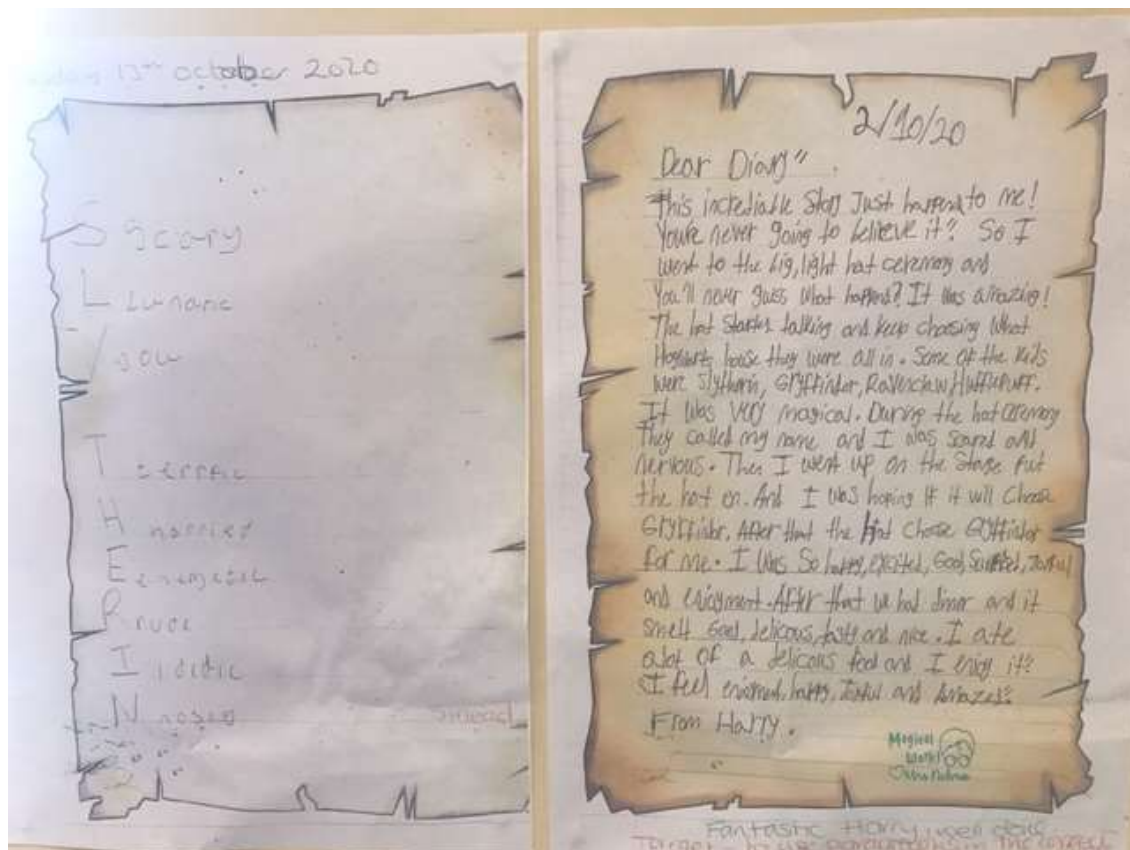 13th october 2020
S scary
L Lunaric
Y you
T terrific
H horried
E energetic
R rude
I idiotic
N
2/10/20
Dear Diary"
This incrediable Story Just happend to me!
You're never going to believe it? So I
went to the big, light hat ceremony and
You'll never guiss what happend? It was amazing!
The hat started talking and keep choosing What
Hogwarts house they were all in. Some of the kids
were Slytherin, Gryffindor, Ravenclaw, Hufflepuff.
It was very magical. During the hat ceremony
They called my name and I was scared and
nervous. Then I went up on the Stage Put
the hat on. And I was hoping if it will Choose
Gryffindor. After that the hat chose Gryffindor
for me. I was So happy, excited, Good, Joyful
and enjoyment. After that we had diner and it
smelt Good, delicous, tasty and nice. I ate
alot of a delicous food and I enjoy it?
I feel happy, Joyful and Amazed?
From Harry.
Magical
Work!
Fantastic Harry, well done
Target -